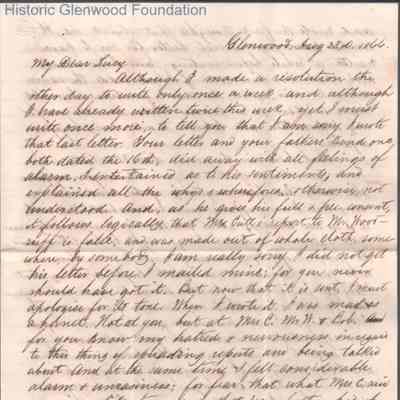 Historic Glenwood Foundation
Glenwood, Aug 22d, 1866.
My Dear Lucy
Although I made a resolution the
other day to write only once a week and although
I have already written twice this week, yet I must
write once more, to tell you that I am sorry I wrote
that last letter. Your letter and your father's kind one
both dated the 16th, did away with all feelings of
alarm, entertained as to his sentiments, and
explained all the whys & wherefores, otherwise not
understood. And, as he gives his full & free consent,
it follows logically that Mrs report to Mr Wood-
ruff is false, and was made out of whole cloth, some
where by somebody. I am really sorry I did not get
his letter before I mailed mine; for you never
should have got it. But now that it is sent, I must
apologise for its tone. When I wrote it, I was mad as
a hornet. Not at you, but at Mrs C. Mr W. &
for you know my hatred & nervousness in regard
to this thing of spreading reports and being talked
about and at the same time I felt considerable
alarm & uneasiness; for fear, that what Mrs C. said